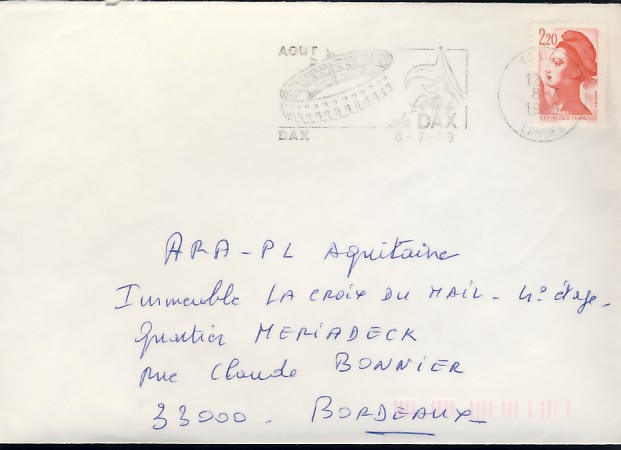 AOUT
fêtes
de DAX
DAX
2,20
REPUBLIQUE FRANÇAISE
12
8
LANDES
ARA-PL Aquitaine
Immeuble LA CROIX DU MAIL - 4° étage.
Quartier MERIADECK
rue Claude BONNIER
33000. BORDEAUX